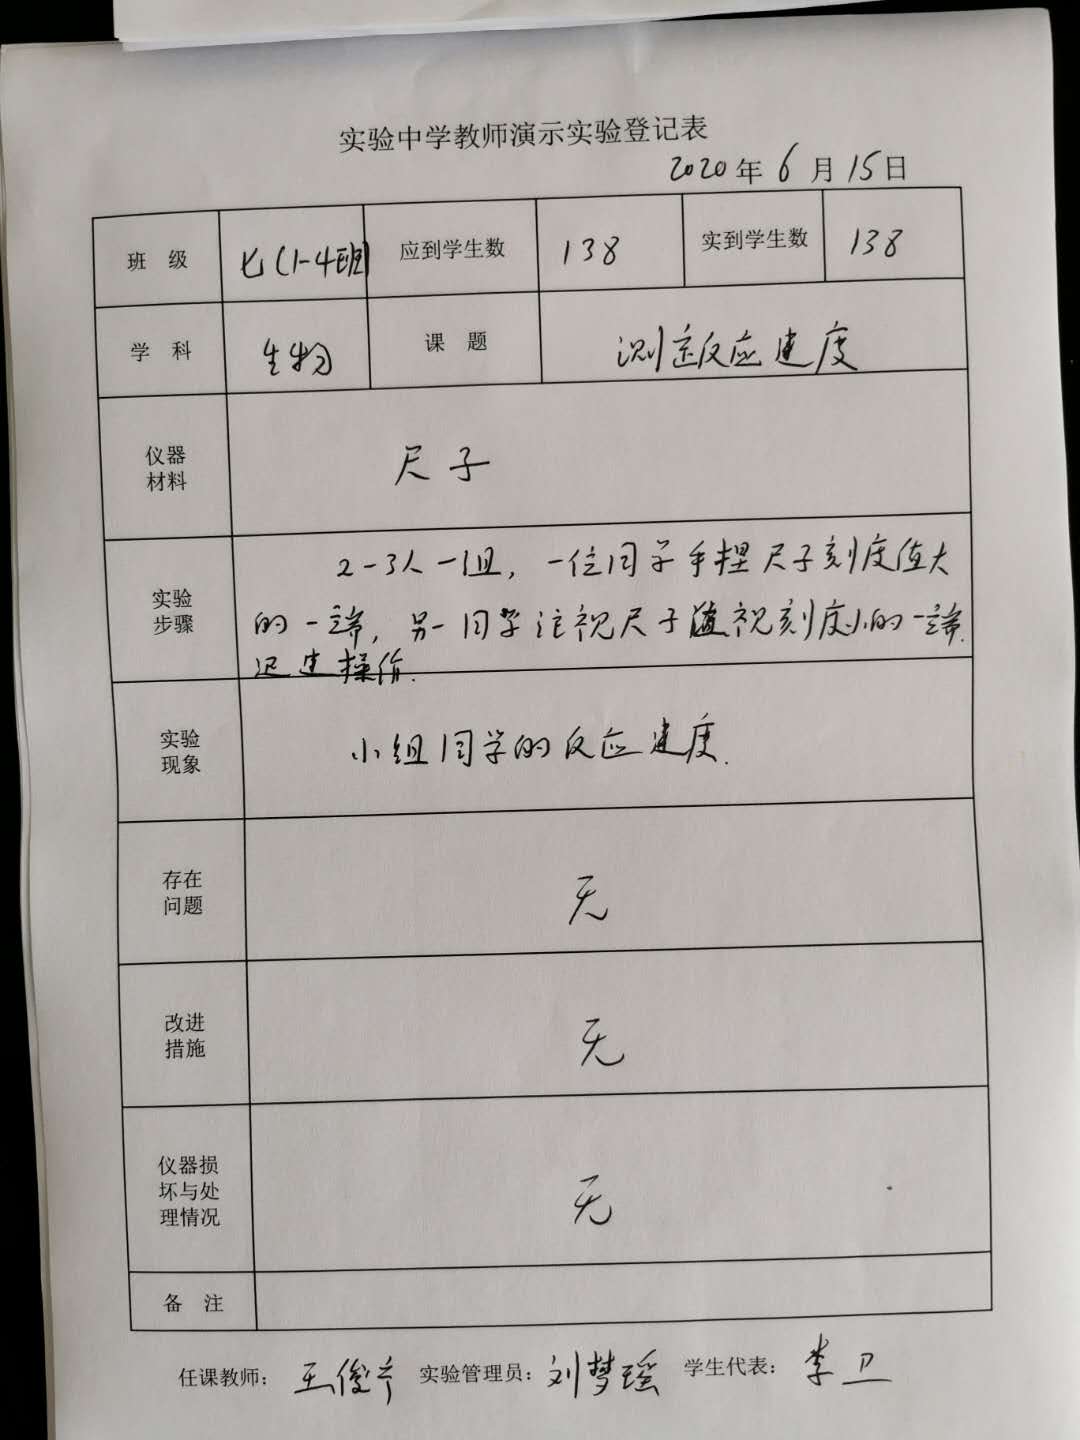 实验中学教师演示实验登记表
2020年6月15日
班 级 七(1-4班) 应到学生数 138 实到学生数 138
学 科 生物 课 题 测定反应速度
仪器
材料
尺子
实验
步骤
2-3人一组，一位同学手捏尺子刻度值大
的一端，另一同学注视尺子 视刻度小的一端.
迅速操作.
实验
现象
小组同学的反应速度.
存在
问题
无
改进
措施
无
仪器损
坏与处
理情况
无
备 注
任课教师： 王俊 实验管理员：刘梦瑶 学生代表： 李卫